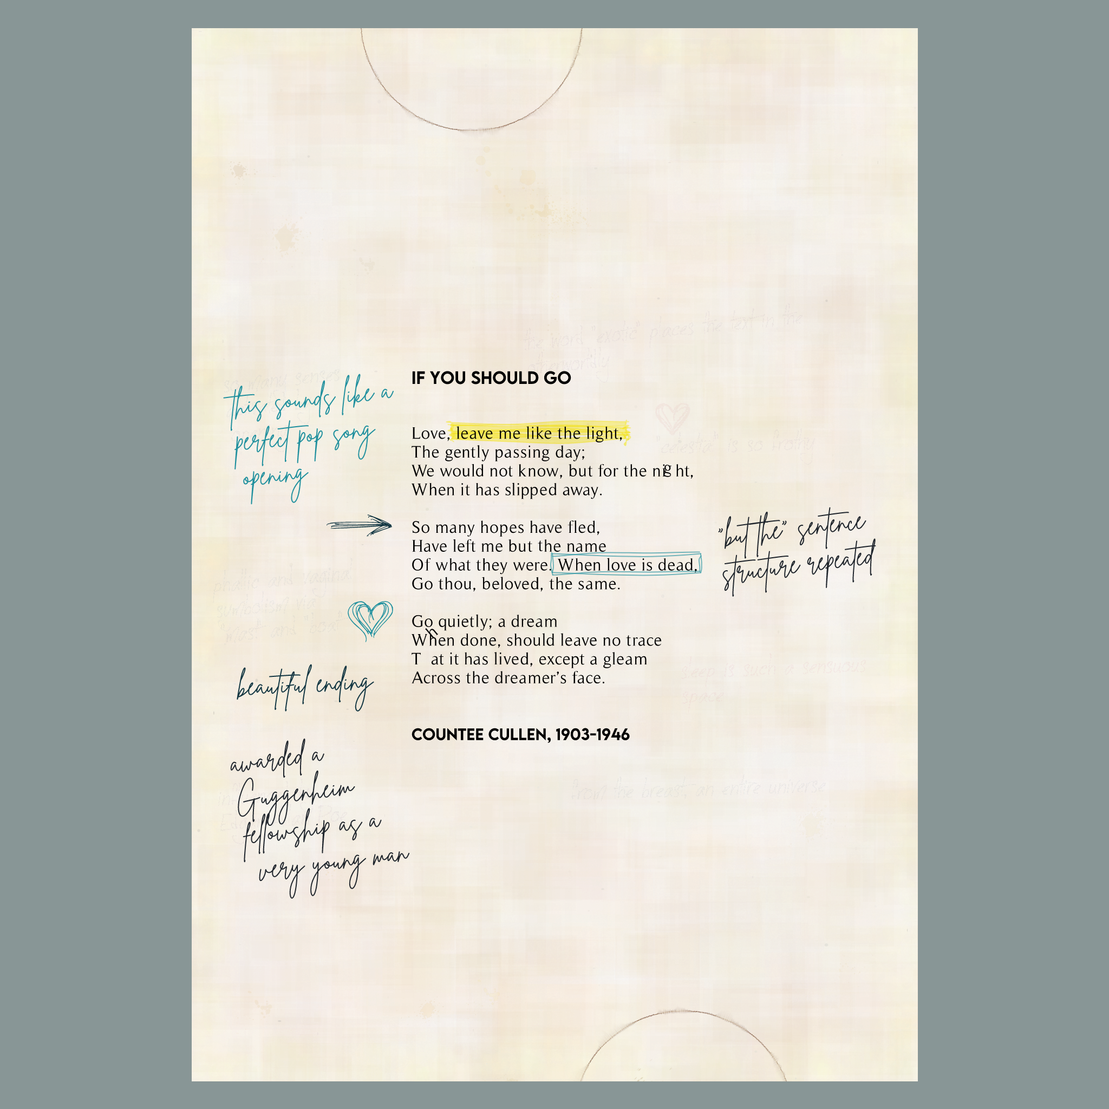 IF YOU SHOULD GO
this sounds like a
perfect pop song
opening
Love, leave me like the light,
The gently passing day;
We would not know, but for the night,
When it has slipped away.
So many hopes have fled,
Have left me but the name
Of what they were. When love is dead,
Go thou, beloved, the same.
"but the" sentence
structure repeated
Go quietly; a dream
When done, should leave no trace
T at it has lived, except a gleam
Across the dreamer's face.
beautiful ending
COUNTEE CULLEN, 1903-1946
awarded a
Guggenheim
fellowship as a
very young man